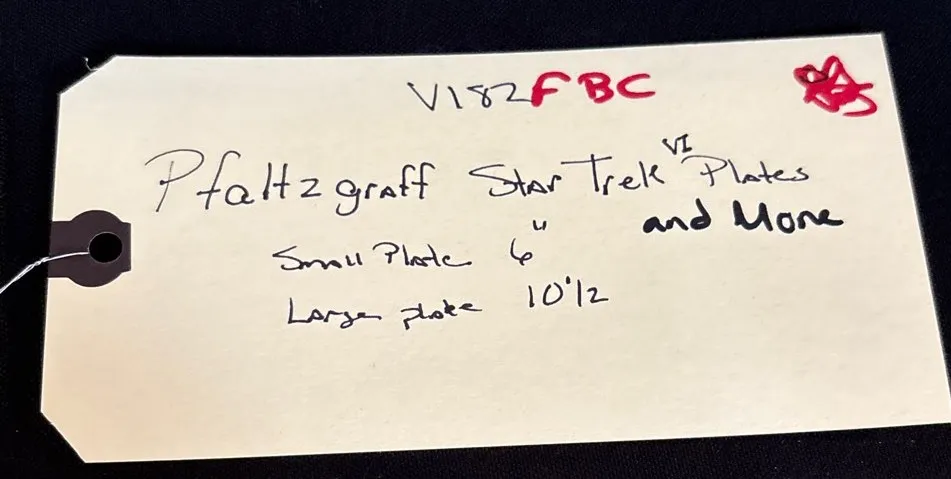 V182FBC
Pfaltzgraff Star Trek VI Plates
and More
Small Plate 6"
Large plate 10 1/2